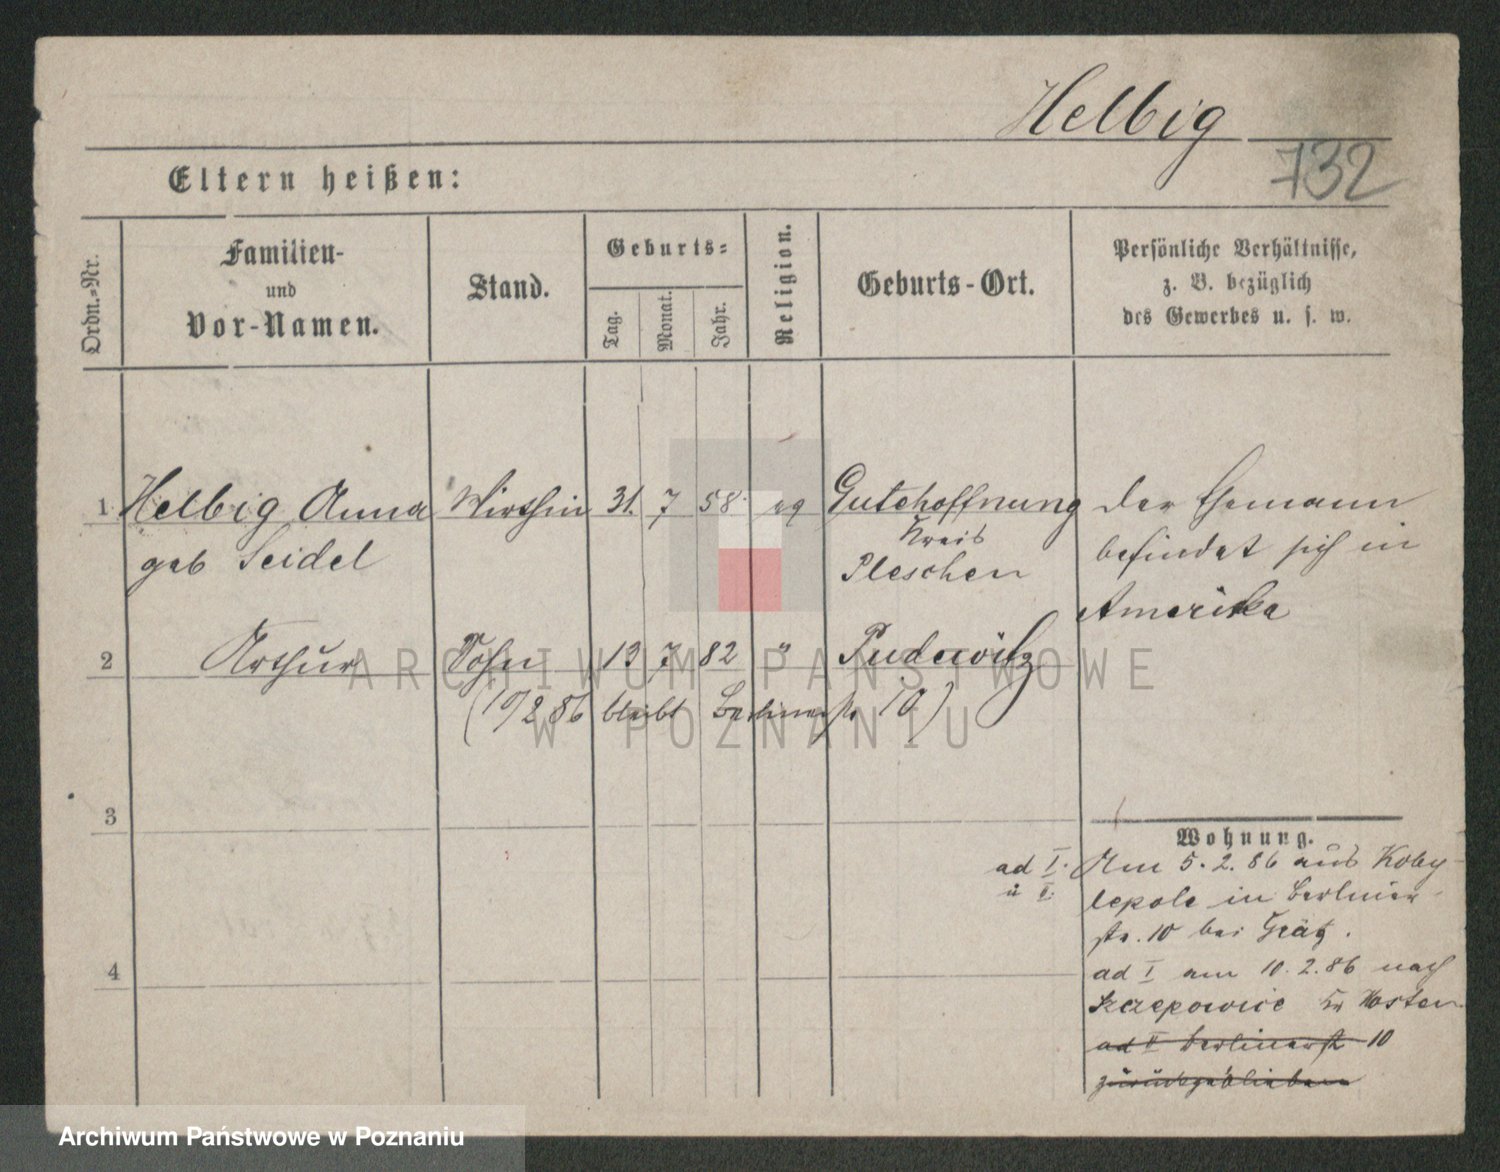 Helbig
732
Eltern heißen:
Ordn.=Nr.
Familien-
und
Vor-Namen.
Stand.
Geburts=
Tag.
Monat.
Jahr.
Religion.
Geburts-Ort.
Persönliche Verhältnisse,
z. B. bezüglich
des Gewerbes u. s. w.
1 Helbig Anna Wirthin 31. 7 58. eg Gutehoffnung der Ehemann
geb Seidel Kreis Pleschen befindet sich in
Amerika
2 Arthur Sohn 13 7 82 " Pudewitz
(10/2 86 bleibt Berlinerstr 10)
3
Wohnung.
ad I. u II. Am 5. 2. 86 aus Koby-
lepole in Berliner-
str. 10 bei Grätz.
4 ad I am 10. 2. 86 nach
Szczepowice Kr Kosten
ad II Berlinerstr 10
zurückgeblieben
ARCHIWUM PAŃSTWOWE
W POZNANIU
Archiwum Państwowe w Poznaniu